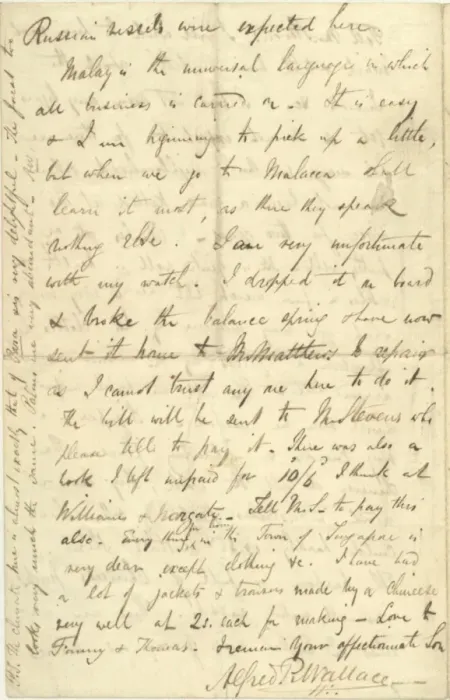 Russian vessels were expected here.
Malay is the universal language in which
all business is carried on. It is easy
& I am beginning to pick up a little,
but when we go to Malacca shall
learn it most, as there they speak
nothing else. - I am very unfortunate
with my watch. I dropped it on board
& broke the balance spring & have now
sent it home to Mr. Matthews to repair
as I cannot trust any one here to do it.
The bill will be sent to Mr Stevens who
please tell to pay it. There was also a
book I left unpaid for 10/6 I think at
Williams & Norgate - Tell Mr. S. to pay this
also. Every thing in the Town of Singapore is
very dear except clothing &c. I have had
a lot of jackets & trousers made by a Chinese
very well at 2s. each for making - Love to
Fanny & Thomas. I remain Your affectionate Son
Alfred R. Wallace
P.S. The climate here is almost exactly that of Para is very delightful - The forest too
looks very much the same. Palms are very abundant -